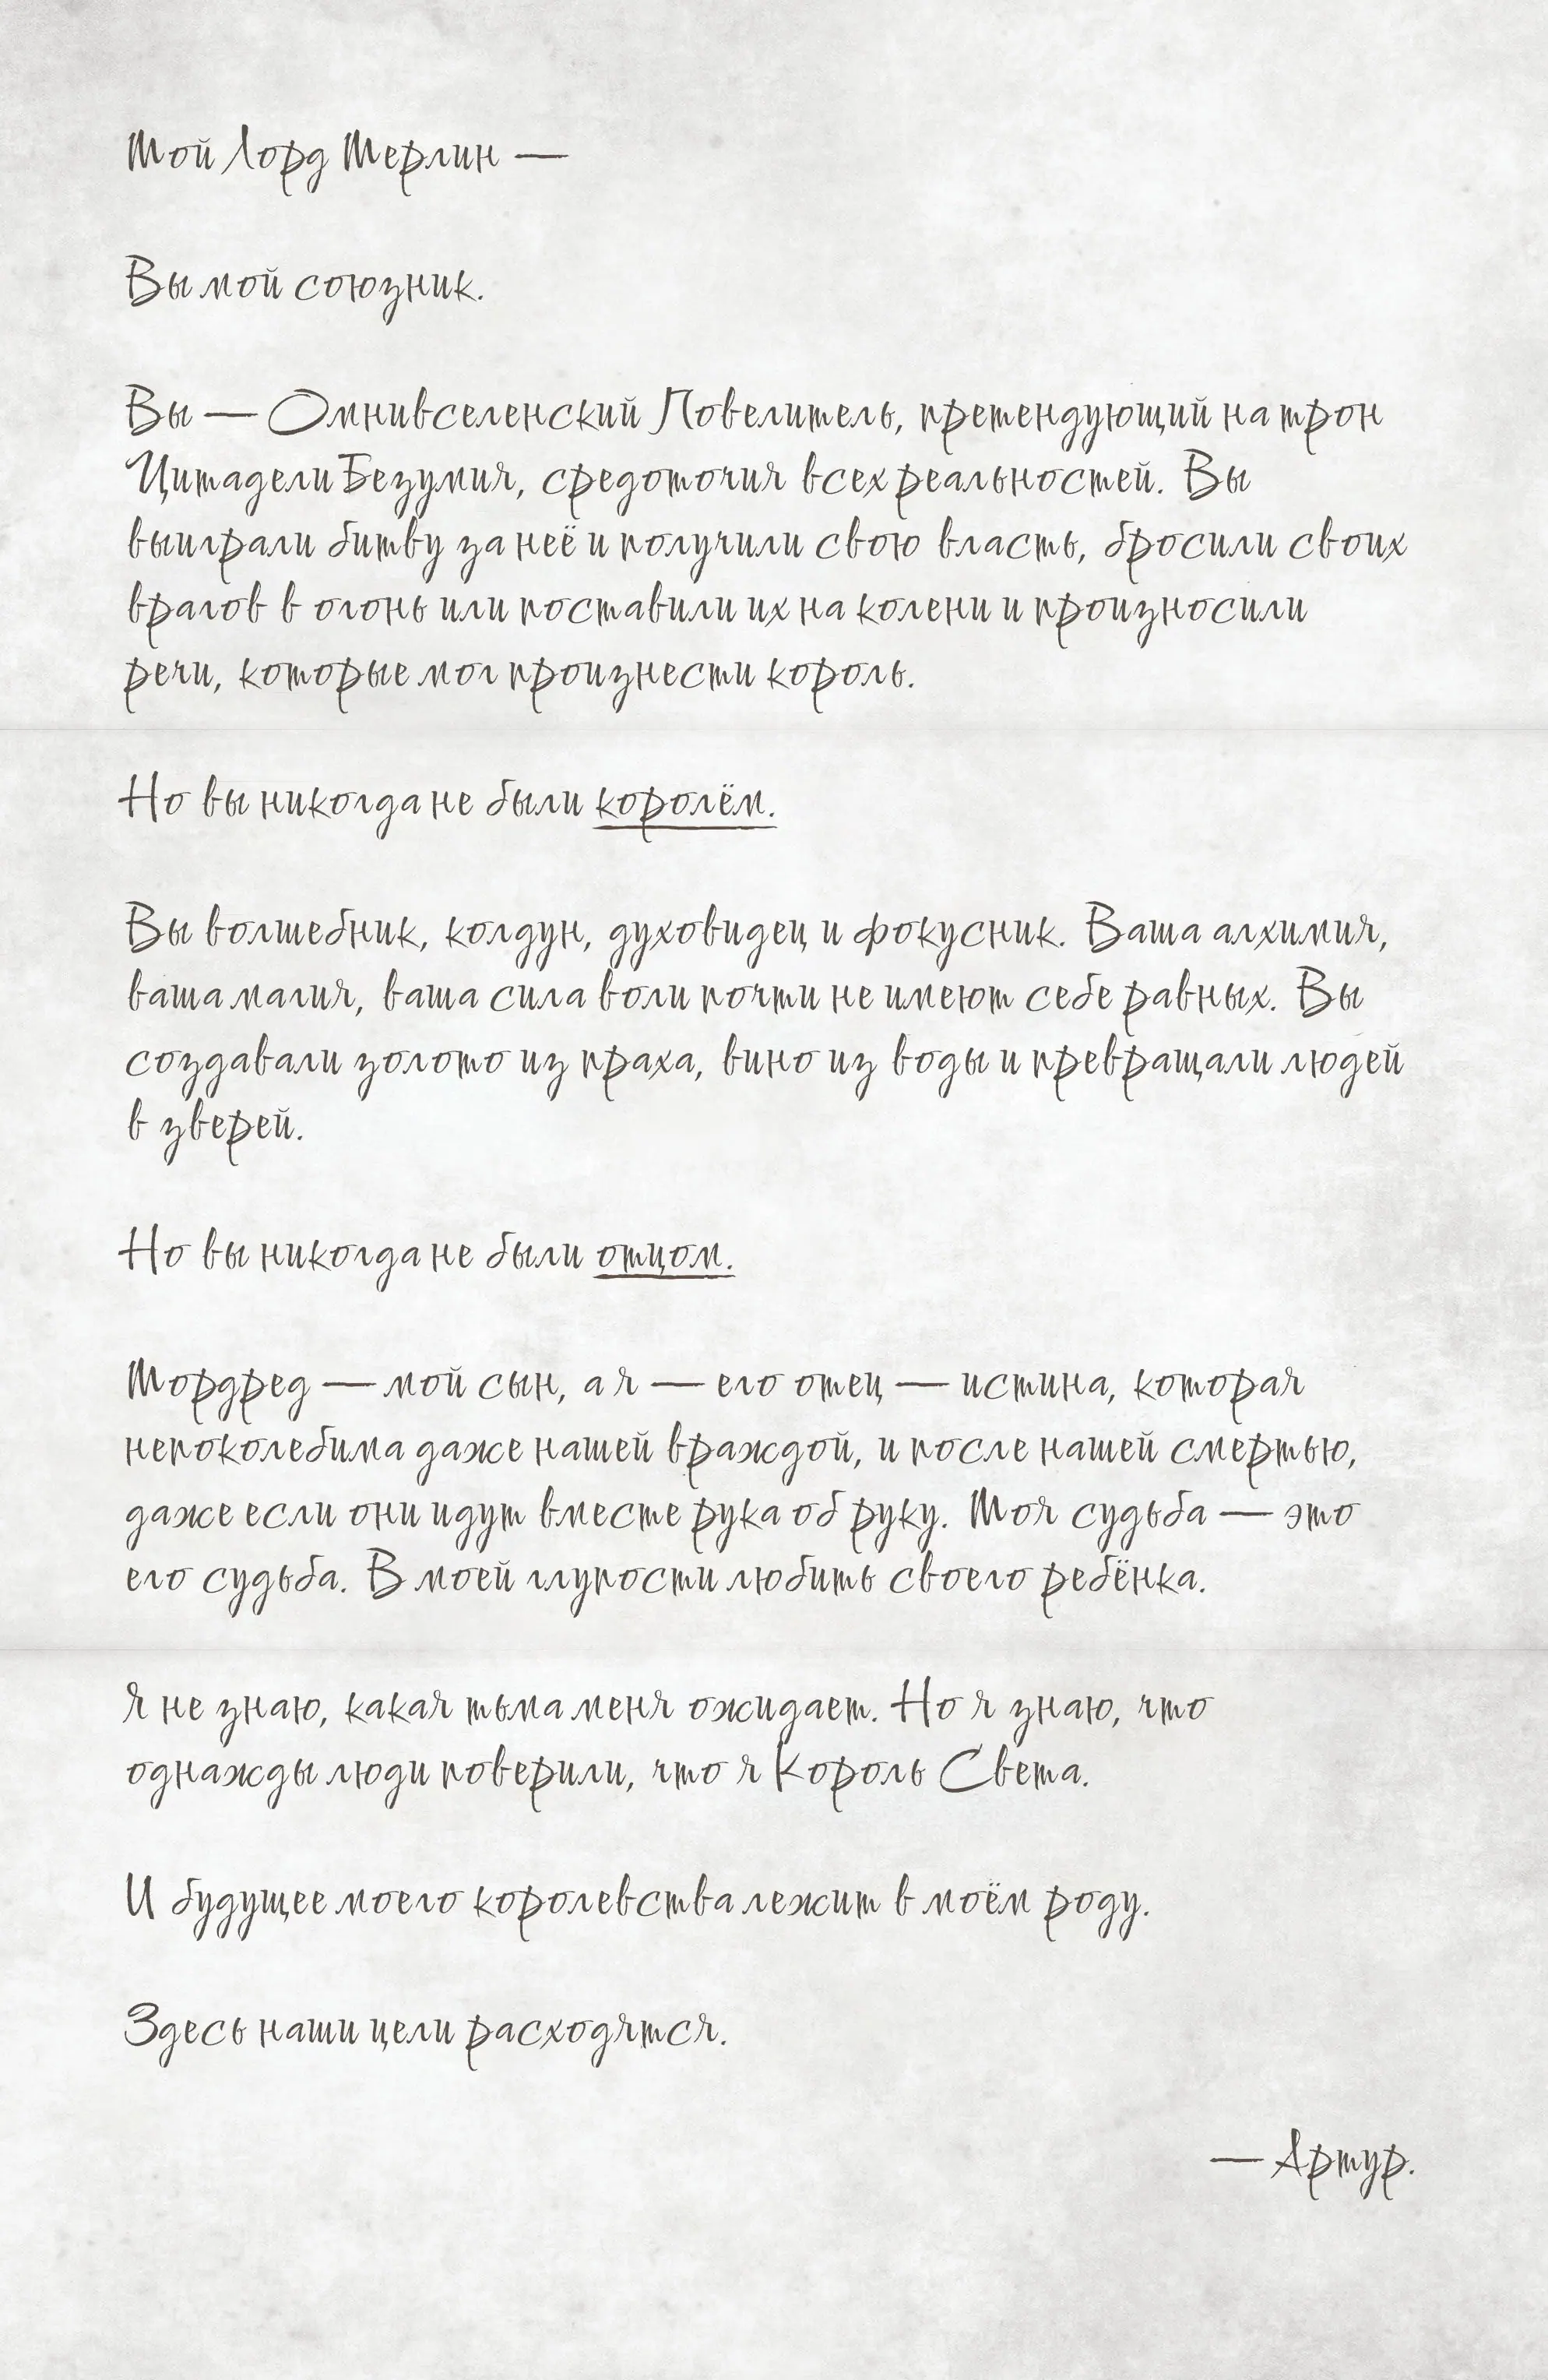 Мой Лорд Мерлин —
Вы мой союзник.
Вы — Омнивселенский Повелитель, претендующий на трон
Цитадели Безумия, средоточия всех реальностей. Вы
выиграли битву за неё и получили свою власть, бросили своих
врагов в огонь или поставили их на колени и произносили
речи, которые мог произнести король.
Но вы никогда не были королём.
Вы волшебник, колдун, духовидец и фокусник. Ваша алхимия,
ваша магия, ваша сила воли почти не имеют себе равных. Вы
создавали золото из праха, вино из воды и превращали людей
в зверей.
Но вы никогда не были отцом.
Мордред — мой сын, а я — его отец — истина, которая
непоколебима даже нашей враждой, и после нашей смертью,
даже если они идут вместе рука об руку. Моя судьба — это
его судьба. В моей глупости любить своего ребёнка.
Я не знаю, какая тьма меня ожидает. Но я знаю, что
однажды люди поверили, что я Король Света.
И будущее моего королевства лежит в моём роду.
Здесь наши цели расходятся.
— Артур.